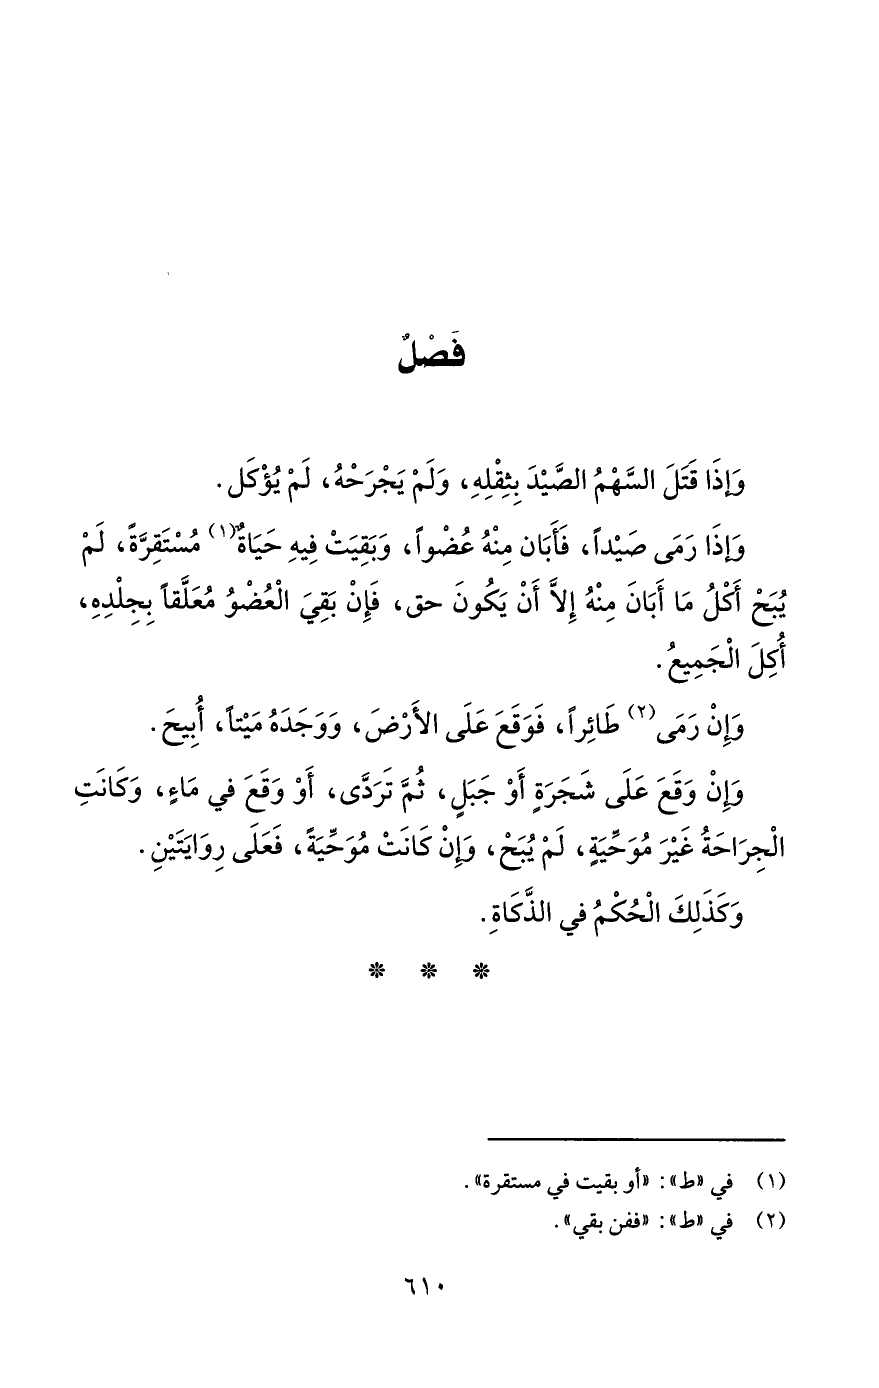 فَصْلٌ
وَإِذَا قَتَلَ السَّهْمُ الصَّيْدَ بِثِقْلِهِ، وَلَمْ يَجْرَحْهُ، لَمْ يُؤْكَل.
وَإِذَا رَمَى صَيْداً، فَأَبَان مِنْهُ عُضْواً، وَبَقِيَتْ فِيهِ حَيَاةٌ(١) مُسْتَقِرَّةً، لَمْ
يُبَحْ أَكْلُ مَا أَبَانَ مِنْهُ إِلاَّ أَنْ يَكُونَ حق، فَإِنْ بَقِيَ الْعُضْوُ مُعَلَّقاً بِجِلْدِهِ،
أُكِلَ الْجَمِيعُ.
وَإِنْ رَمَى(٢) طَائِراً، فَوَقَعَ عَلَى الأَرْضَ، وَوَجَدَهُ مَيْتاً، أُبِيحَ.
وَإِنْ وَقَعَ عَلَى شَجَرَةٍ أَوْ جَبَلٍ، ثُمَّ تَرَدَّى، أَوْ وَقَعَ في مَاءٍ، وَكَانَتِ
الْجِرَاحَةُ غَيْرَ مُوَحِّيَةٍ، لَمْ يُبَحْ، وَإِنْ كَانَتْ مُوَحِّيَةً، فَعَلَى رِوَايَتَيْنِ.
وَكَذَلِكَ الْحُكْمُ في الذَّكَاةِ.
* * *
(١) في «ط»: «أو بقيت في مستقرة».
(٢) في «ط»: «ففن بقي».
٦١٠